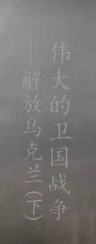 伟大的卫国战争
——解放乌克兰(下)